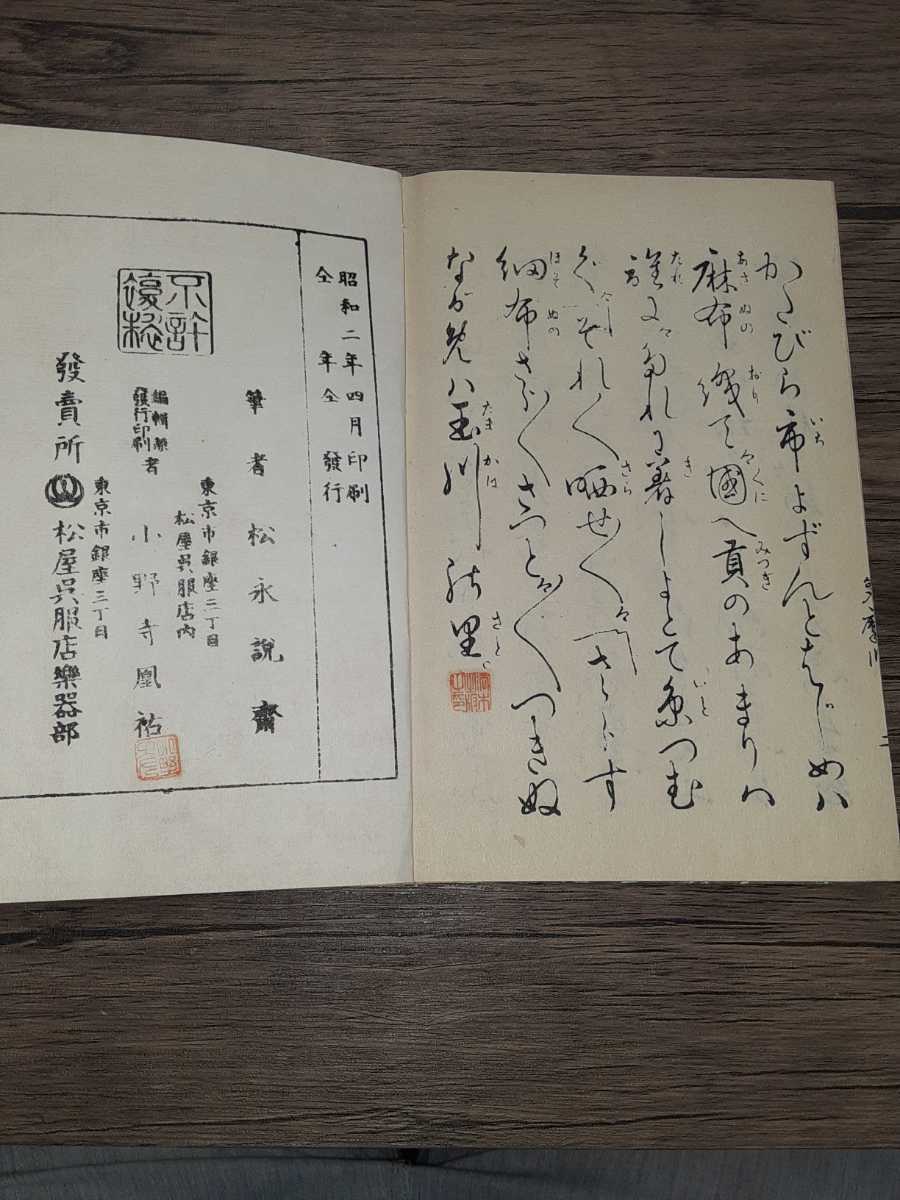 いち
かたびら市よずんとはじめハ
あさぬの おり くに みつき
麻布織て國へ貢のあまりハ
たれ き いと
誰に に着しよとて糸つむ
さら
ぐ それ〱晒せ〱 さらす
ほそぬの
細布さら〱さらと〱つきぬ
たまかは さと
ながめハ玉川の里
二
昭和二年四月印刷
仝年仝發行
筆者 松永説齋
東京市銀座三丁目
松屋呉服店内
編輯兼
發行印刷者 小野寺凰祐
不許
複製
東京市銀座三丁目
發賣所 松屋呉服店樂器部